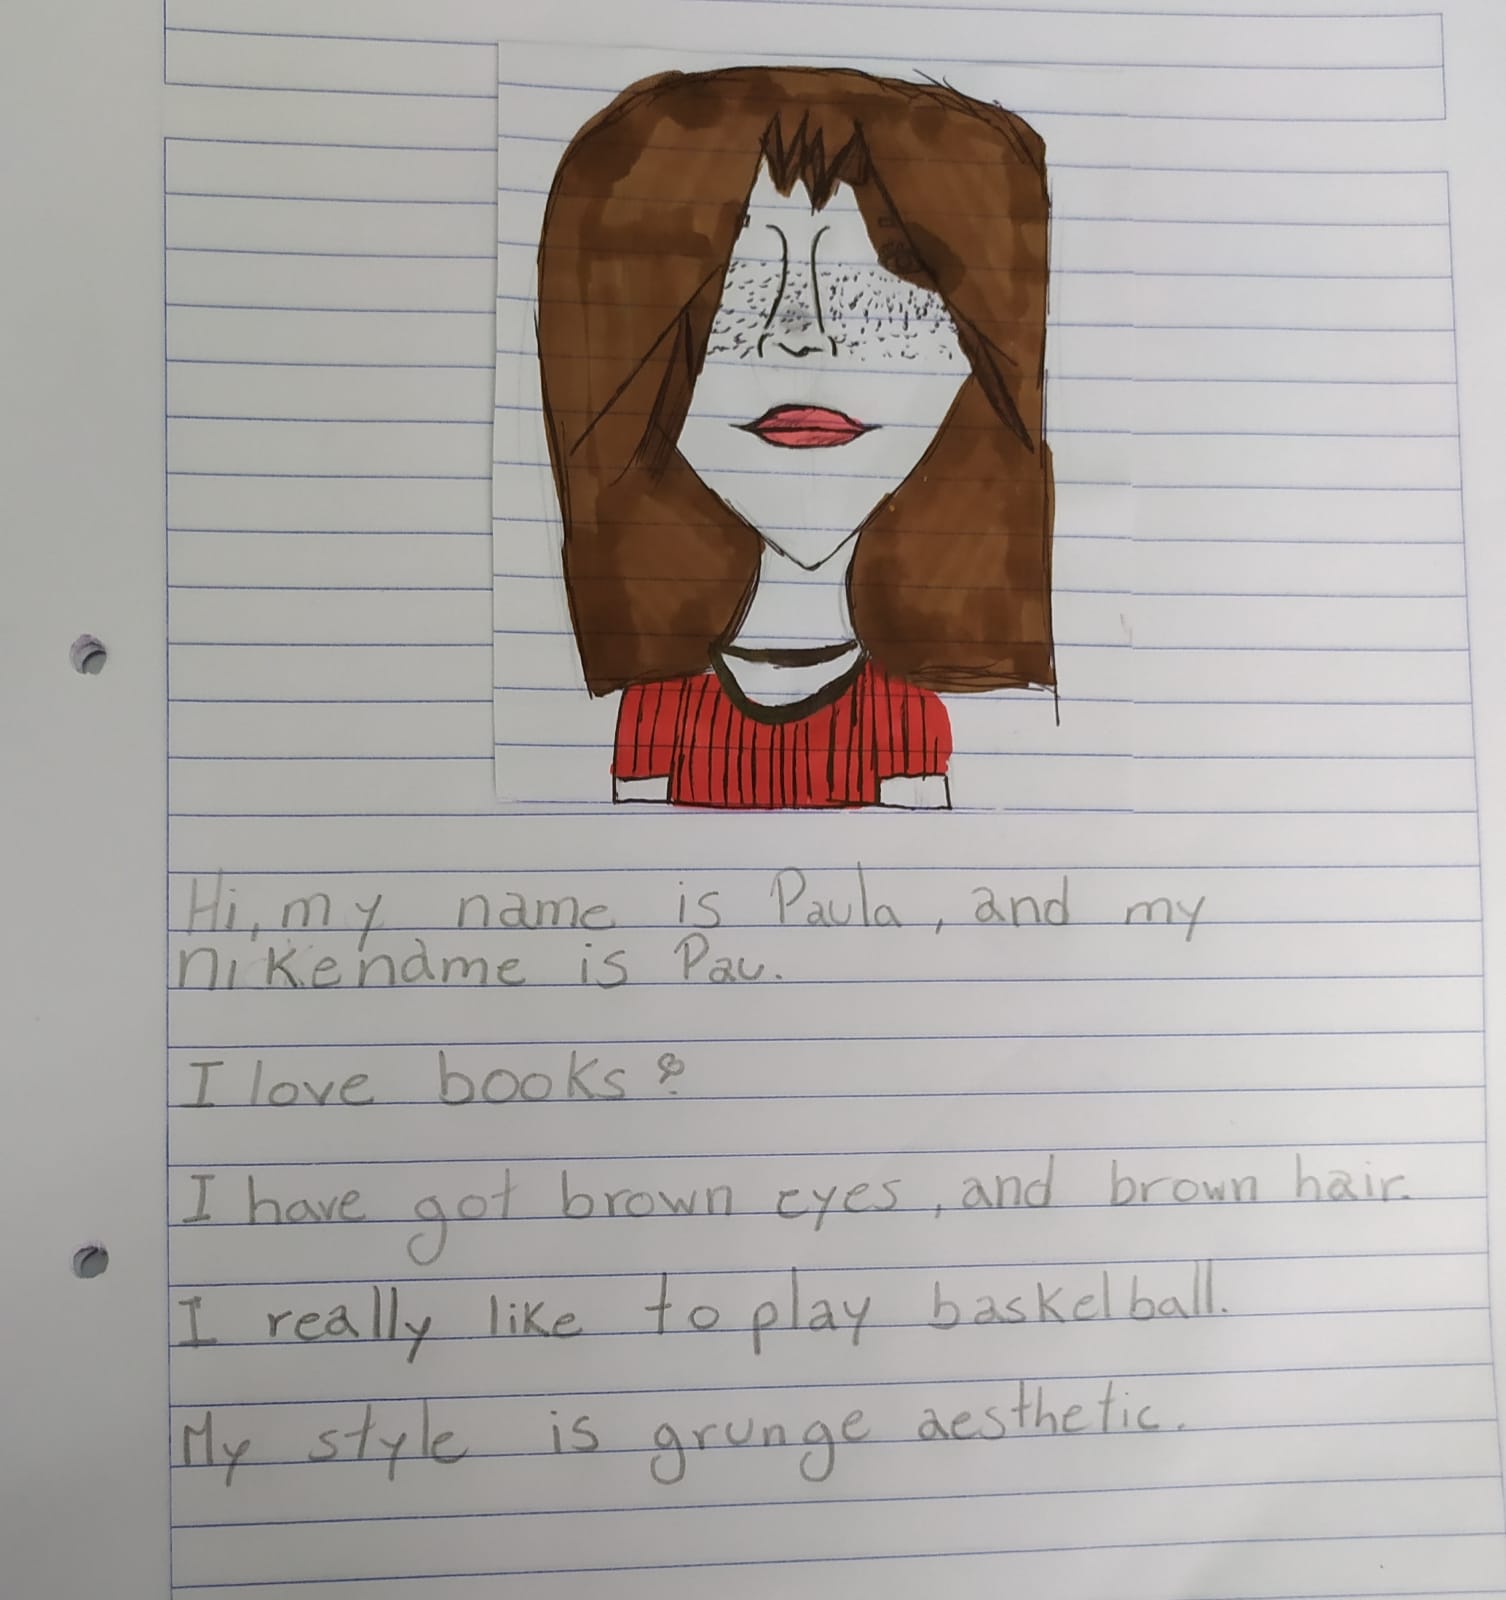 Hi, my name is Paula, and my
nikename is Pau.
I love books!
I have got brown eyes, and brown hair.
I really like to play basketball.
My style is grunge aesthetic.